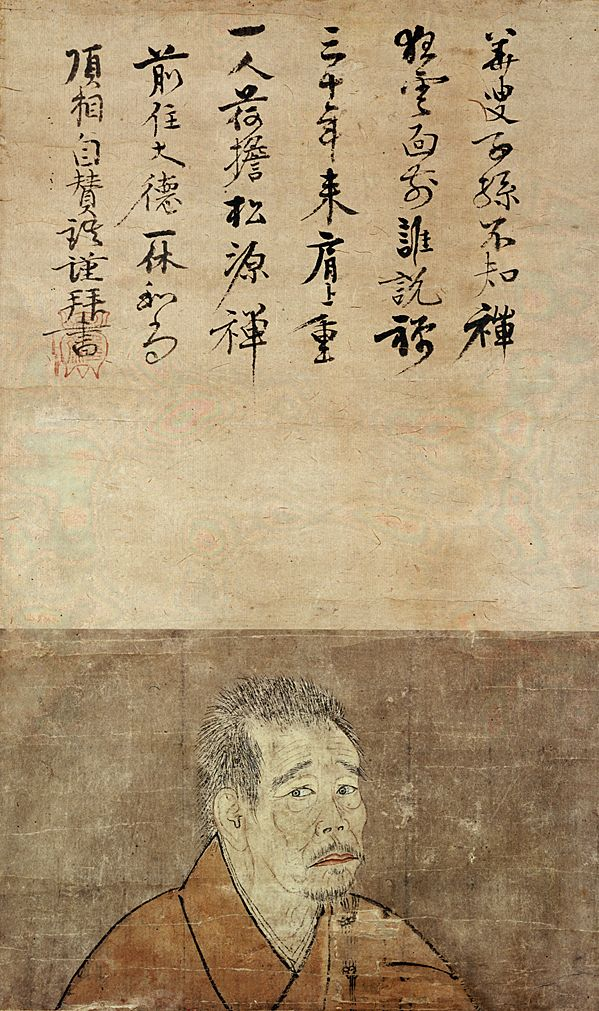 華叟子孫不知禪
狂雲面前誰説禪
三十年来肩上重
一人荷擔松源禪
前住大德一休和尚
頂相自賛謹拜書